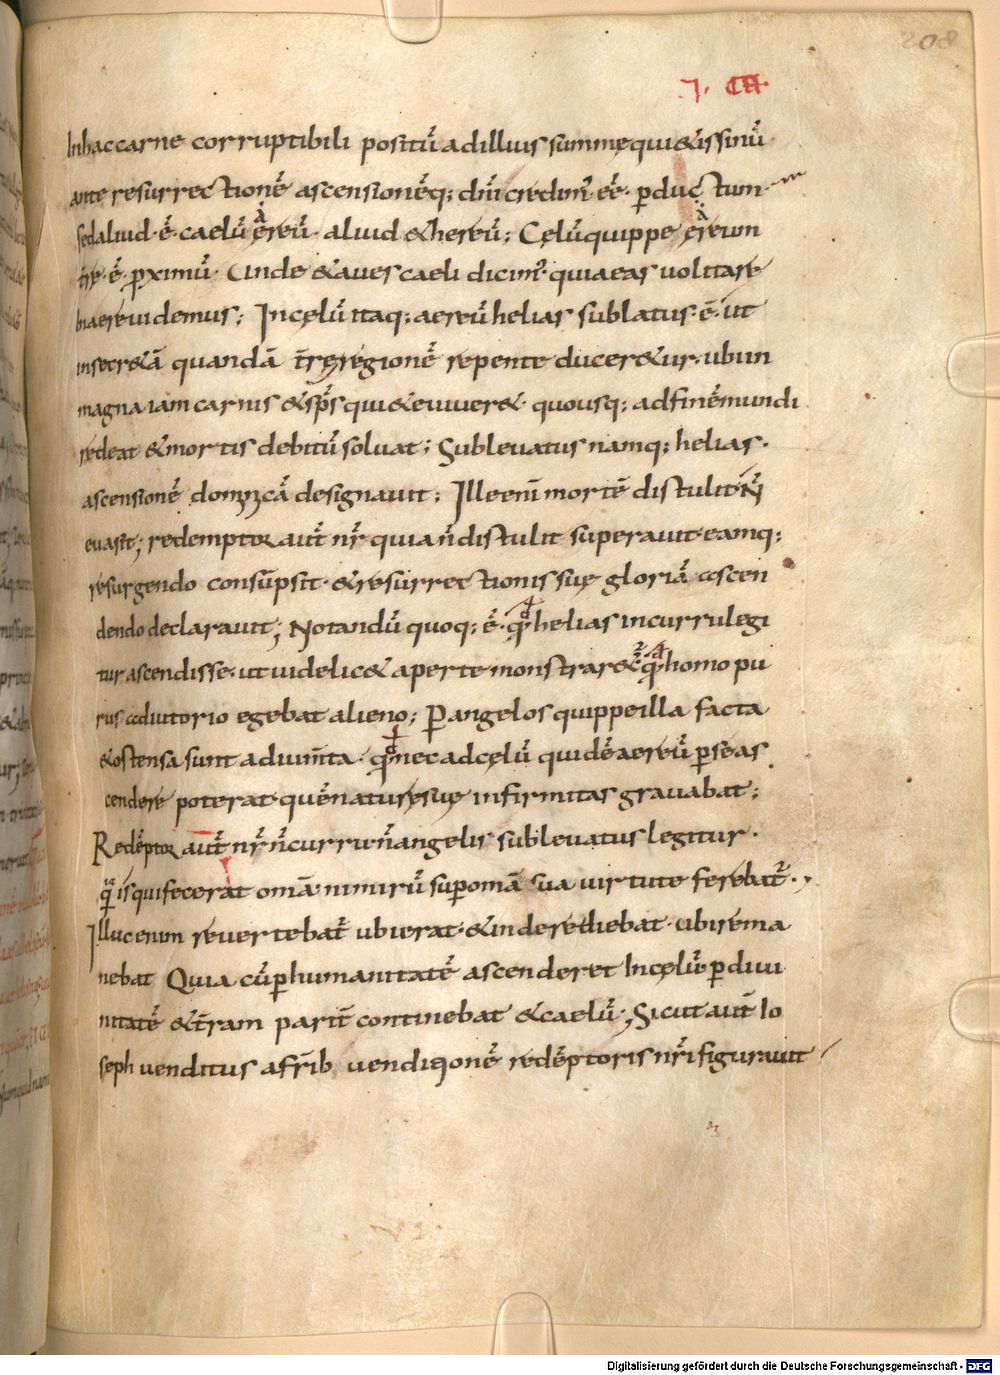 208
Inhaccarne corruptibili positū́ adilliussummęqui&issinū́
ante resurrectionē ascensionēq; dn̄i credim᾿ eē· ꝑductum·
sedaliud·ē· caelū́ ęreū· aliud &hereū́; Cęlū́quippe ęreum
tr̄e·ē· ꝓximū́· Unde &aues caeli dicim᾿· quiaeas volitare
Inaere uidemus; Incęlū́ itaq; aereū́ helias sublatus·ē· ut
insecr&ā quandā tr̄ęregionē repente ducer&ur· ubi in
magna iam carnis &sps̄ qui&euiuer&· quousq; adfinēmundi
redeat &mortis debitū́ soluat; Subleuatus namq; helias·
ascensionē dominicā designauit; Ille enī mortē distulit n̄
euasit; redemptor aut̄ nr̄ quia n̄ distulit superauit· eamq;
resurgendo consūpsit· &resurrectionis suę gloriā ascen
dendo declarauit; Notandū́ quoq; ē· qđ helias incurru legi
tur ascendisse· ut uidelic& aperte monstrar&᾿ qđ homo pu
rus adiutorio egebat alieno; Per angelos quippe illa facta
&ostensa sunt adium̄ta· qđ nec adcęlū́ quidē aereū́ ꝑse as
cendere poterat· quēnaturęsuę infirmitas grauabat;
Redēptor aut̄ nr̄ n̄ curru n̄ angelis subleuatus legitur·
qa isquifecerat omā· nimirū́ suꝑ omā sua uirtute ferebat᾿·
Illuc enim reuertebat᾿ ubi erat· &inde rediebat· ubi rema
nebat Quia cū́ ꝑ humanitatē ascenderet Incęlū́· ꝑ diui
nitatē &tr̄am parit̄ continebat &caelū́·; Sicut aut̄ Io
seph uenditus afrīb uenditionē redēptoris nr̄i figurauit
Digitalisierung gefördert durch die Deutsche Forschungsgemeinschaft - DFG